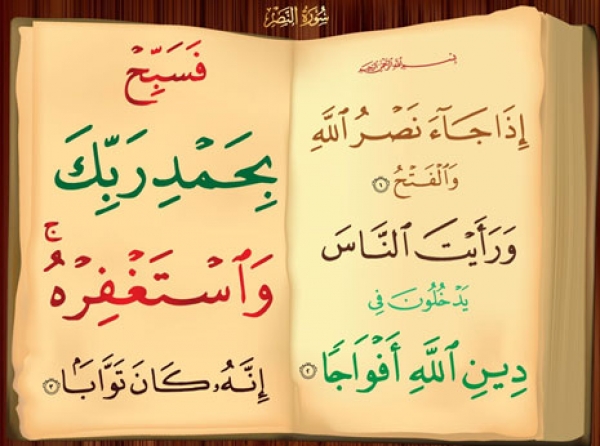 سُورَةُ النَّصْرِ
بِسْمِ اللَّهِ الرَّحْمَٰنِ الرَّحِيمِ
إِذَا جَآءَ نَصْرُ ٱللَّهِ
وَٱلْفَتْحُ ١
وَرَأَيْتَ ٱلنَّاسَ
يَدْخُلُونَ فِى
دِينِ ٱللَّهِ أَفْوَاجًا ٢
فَسَبِّحْ
بِحَمْدِ رَبِّكَ
وَٱسْتَغْفِرْهُ ۚ
إِنَّهُۥ كَانَ تَوَّابًۢا ٣